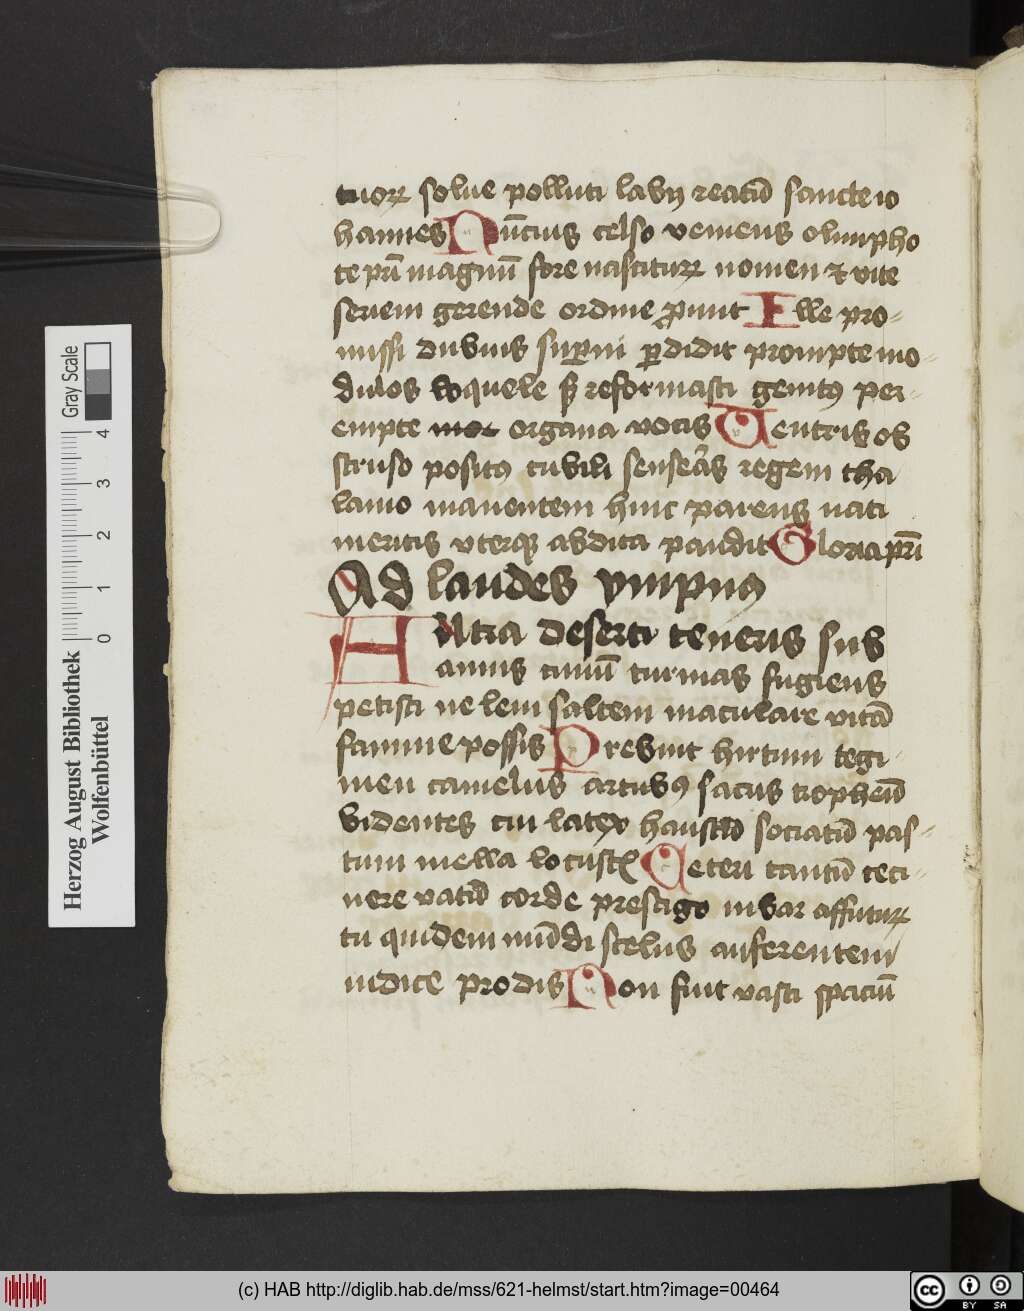 tuoꝝ solue polluti labij reatū sancte io
hannes Nūcius celso veniens olimpho
te prī magnū fore nasciturꝝ nomen & vite
seriem gerende ordine ꝓmit Ille pro-
missi dubius suꝑni ꝑdidit prompte mo-
dulos loquele sꝫ reformasti genitꝰ per-
empte organa vocis Uentris ob
struso positꝰ cubili senserās regem tha
lamo manentem hinc parens nati
meritis vterqꝫ abdita pandit Gloria pr̄i
Ad laudes ympnꝰ
Antra deserti teneris sub
annis ciuiū turmas fugiens
petisti ne leui saltem maculare vitā
famine possis Prebuit hirtum tegi-
men camelus artubꝰ sacris stropheū
bidentes cui latex haustū sociatū pas-
tum mella locustꝭ Ceteri tantū ceci-
nere vatū corde presago iubar affuturꝝ
tu quidem mūdi scelus auferentem
indice prodis Non fuit vasti spaciū
Gray Scale
4
3
2
1
0
Herzog August Bibliothek
Wolfenbüttel
(c) HAB http://diglib.hab.de/mss/621-helmst/start.htm?image=00464
cc BY SA